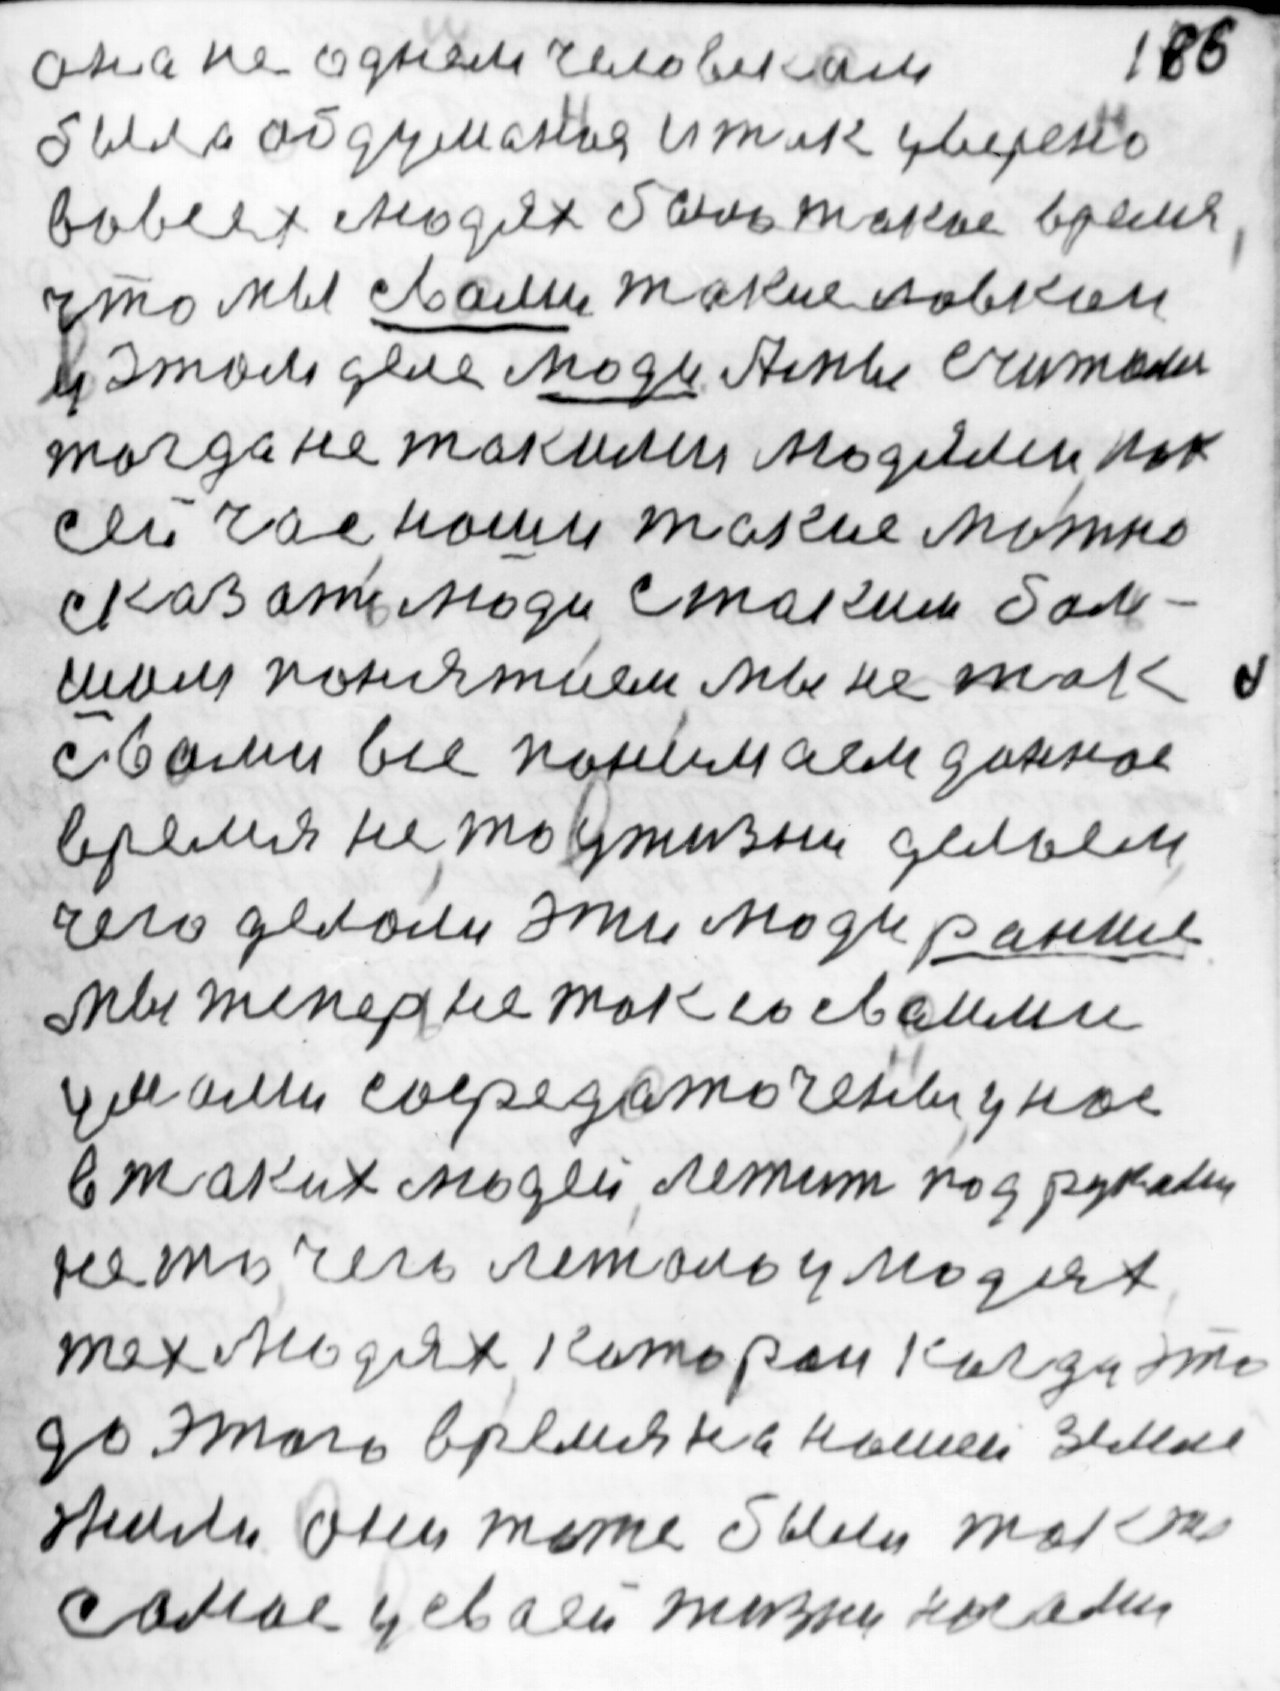 186
она не однем человекам
была обдуманая и так уверено
вовсех людях было такое время,
что мы свами такие ловкии
у этом деле люди Амы считали
тогда не такими людями, как
сей час, наши такие можно
сказать, люди с таким боль-
шом понятием, мы не так
свами все понимаем данное
время не, то у жизни делаем,
чего делали эти люди ранше
мы тепер не так со своими
умами сосредаточены, у нас
в таких людей, лежит под руками
не то, чего лежало у людях,
тех людях, каторои когда это
до этого время на нашей земле
жили. Они тоже были такжо
самое у своей жизни